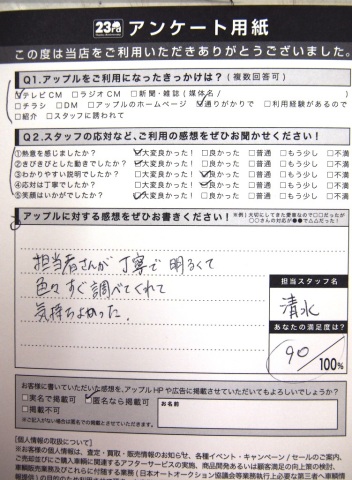 23ra アンケート用紙
この度は当店をご利用いただきありがとうございました。
Q1.アップルをご利用になったきっかけは?(複数回答可)
☑テレビCM □ラジオCM □新聞・雑誌(媒体名/ )
□チラシ □DM □アップルのホームページ ☑通りがかりで □利用経験があるので
□紹介 □スタッフに誘われて
Q2.スタッフの応対など、ご利用の感想をぜひお聞かせください!
①熱意を感じましたか? ☑大変良かった! □良かった □普通 □もう少し □不満
②きびきびとした動きでしたか? ☑大変良かった! □良かった □普通 □もう少し □不満
③わかりやすい説明でしたか? □大変良かった! ☑良かった □普通 □もう少し □不満
④応対は丁寧でしたか? □大変良かった! ☑良かった □普通 □もう少し □不満
⑤笑顔はいかがでしたか? ☑大変良かった! □良かった □普通 □もう少し □不満
アップルに対する感想をぜひお書きください!
※例)大切にしてきた愛車なので□□だったが
○○さんの対応が●●で△△だった!
担当者さんが丁寧で明るくて
色々すぐ調べてくれて
気持ちよかった。
担当スタッフ名
清水
あなたの満足度は?
90/100%
お客様に書いていただいた感想を、アップルHPや広告に掲載させていただいてもよろしいでしょうか?
□実名で掲載可 ☑匿名なら掲載可
□掲載不可
お名前
※ご記入がない場合は匿名での掲載とさせていただきます。
【個人情報の取扱について】
※お客様の個人情報は、査定・買取・販売情報のお知らせ、各種イベント・キャンペーン/セールのご案内、
ご売却並びにご購入車輌に関連するアフターサービスの実施、商品開発あるいは顧客満足の向上策の検討、
車輌販売業務及びこれらに付随する業務(日本オートオークション協議会等業務執行上必要な第三者へ車輌情